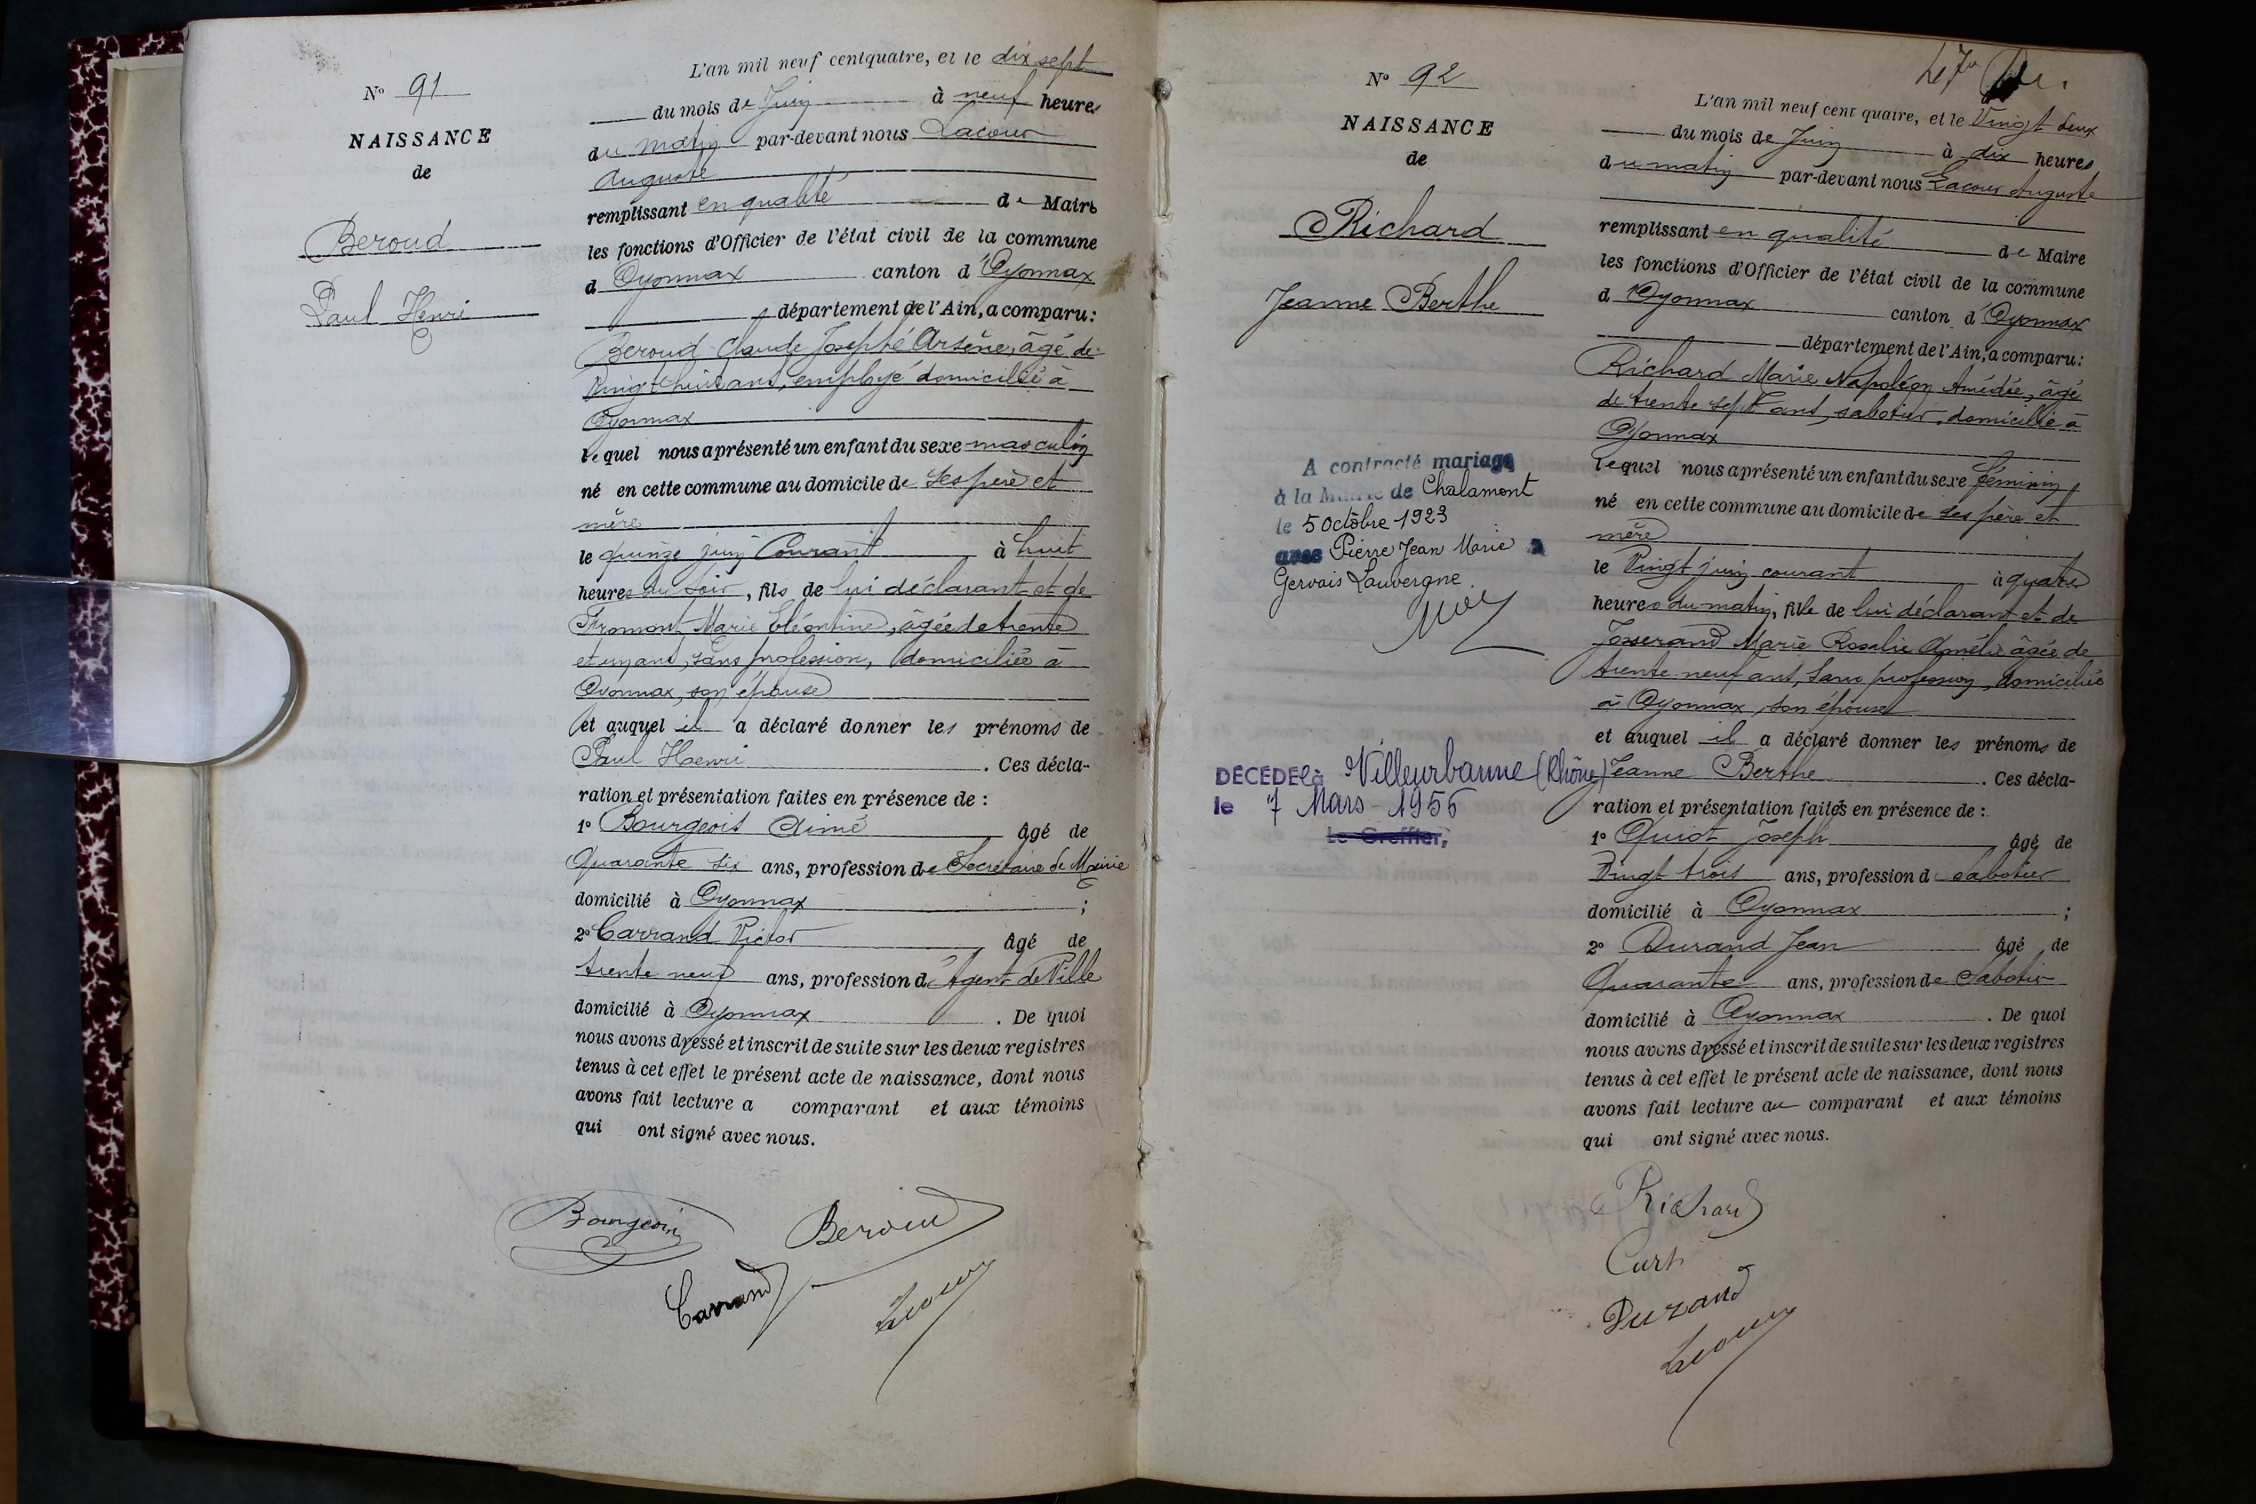 N° 91
NAISSANCE
de
Beroud
Paul Henri
L'an mil neuf cent quatre, et le dix sept
du mois de Juin à neuf heures
du matin par-devant nous Lacour
Auguste
remplissant en qualité de Maire
les fonctions d'Officier de l'état civil de la commune
d Oyonnax canton d'Oyonnax
département de l'Ain, a comparu :
Beroud Claude Joseph Arsène, âgé de
Vingt huit ans, employé domicilié à
Oyonnax
lequel nous a présenté un enfant du sexe masculin
né en cette commune au domicile de ses père et
mère
le quinze juin Courant à huit
heures du soir, fils de lui déclarant et de
Fromont Marie Cléontine, âgée de trente
et un ans, sans profession, domiciliée à
Oyonnax, son épouse
et auquel il a déclaré donner les prénoms de
Paul Henri. Ces décla-
ration et présentation faites en présence de :
1° Bourgeois Aimé âgé de
Quarante six ans, profession de Secrétaire de Mairie
domicilié à Oyonnax ;
2° Carrand Victor âgé de
trente neuf ans, profession d'Agent de Ville
domicilié à Oyonnax. De quoi
nous avons dressé et inscrit de suite sur les deux registres
tenus à cet effet le présent acte de naissance, dont nous
avons fait lecture a comparant et aux témoins
qui ont signé avec nous.
Bourgeois Beroud
Carrand Lacour
N° 92
NAISSANCE
de
Richard
Jeanne Berthe
A contracté mariage
à la Mairie de Chalamont
le 5 octobre 1923
avec Pierre Jean Marie
Gervais Lauvergne.
DÉCÉDÉE à Villeurbanne (Rhône)
le 7 Mars 1956
Le Greffier,
L'an mil neuf cent quatre, et le Vingt deux
du mois de Juin à dix heures
du matin par-devant nous Lacour Auguste
remplissant en qualité de Maire
les fonctions d'Officier de l'état civil de la commune
d'Oyonnax canton d'Oyonnax
département de l'Ain, a comparu :
Richard Marie Napoléon Amédée, âgé
de trente sept ans, sabotier, domicilié à
Oyonnax
lequel nous a présenté un enfant du sexe féminin
né en cette commune au domicile de ses père et
mère
le Vingt juin courant à quatre
heures du matin, fille de lui déclarant et de
Josserand Marie Rosalie Amélie âgée de
trente neuf ans, sans profession, domiciliée
à Oyonnax, son épouse
et auquel il a déclaré donner les prénoms de
Jeanne Berthe. Ces décla-
ration et présentation faites en présence de :
1° Joseph âgé de
Vingt trois ans, profession d sabotier
domicilié à Oyonnax ;
2° Durand Jean âgé de
Quarante ans, profession de Sabotier
domicilié à Oyonnax. De quoi
nous avons dressé et inscrit de suite sur les deux registres
tenus à cet effet le présent acte de naissance, dont nous
avons fait lecture au comparant et aux témoins
qui ont signé avec nous.
Richard
Durand
Lacour